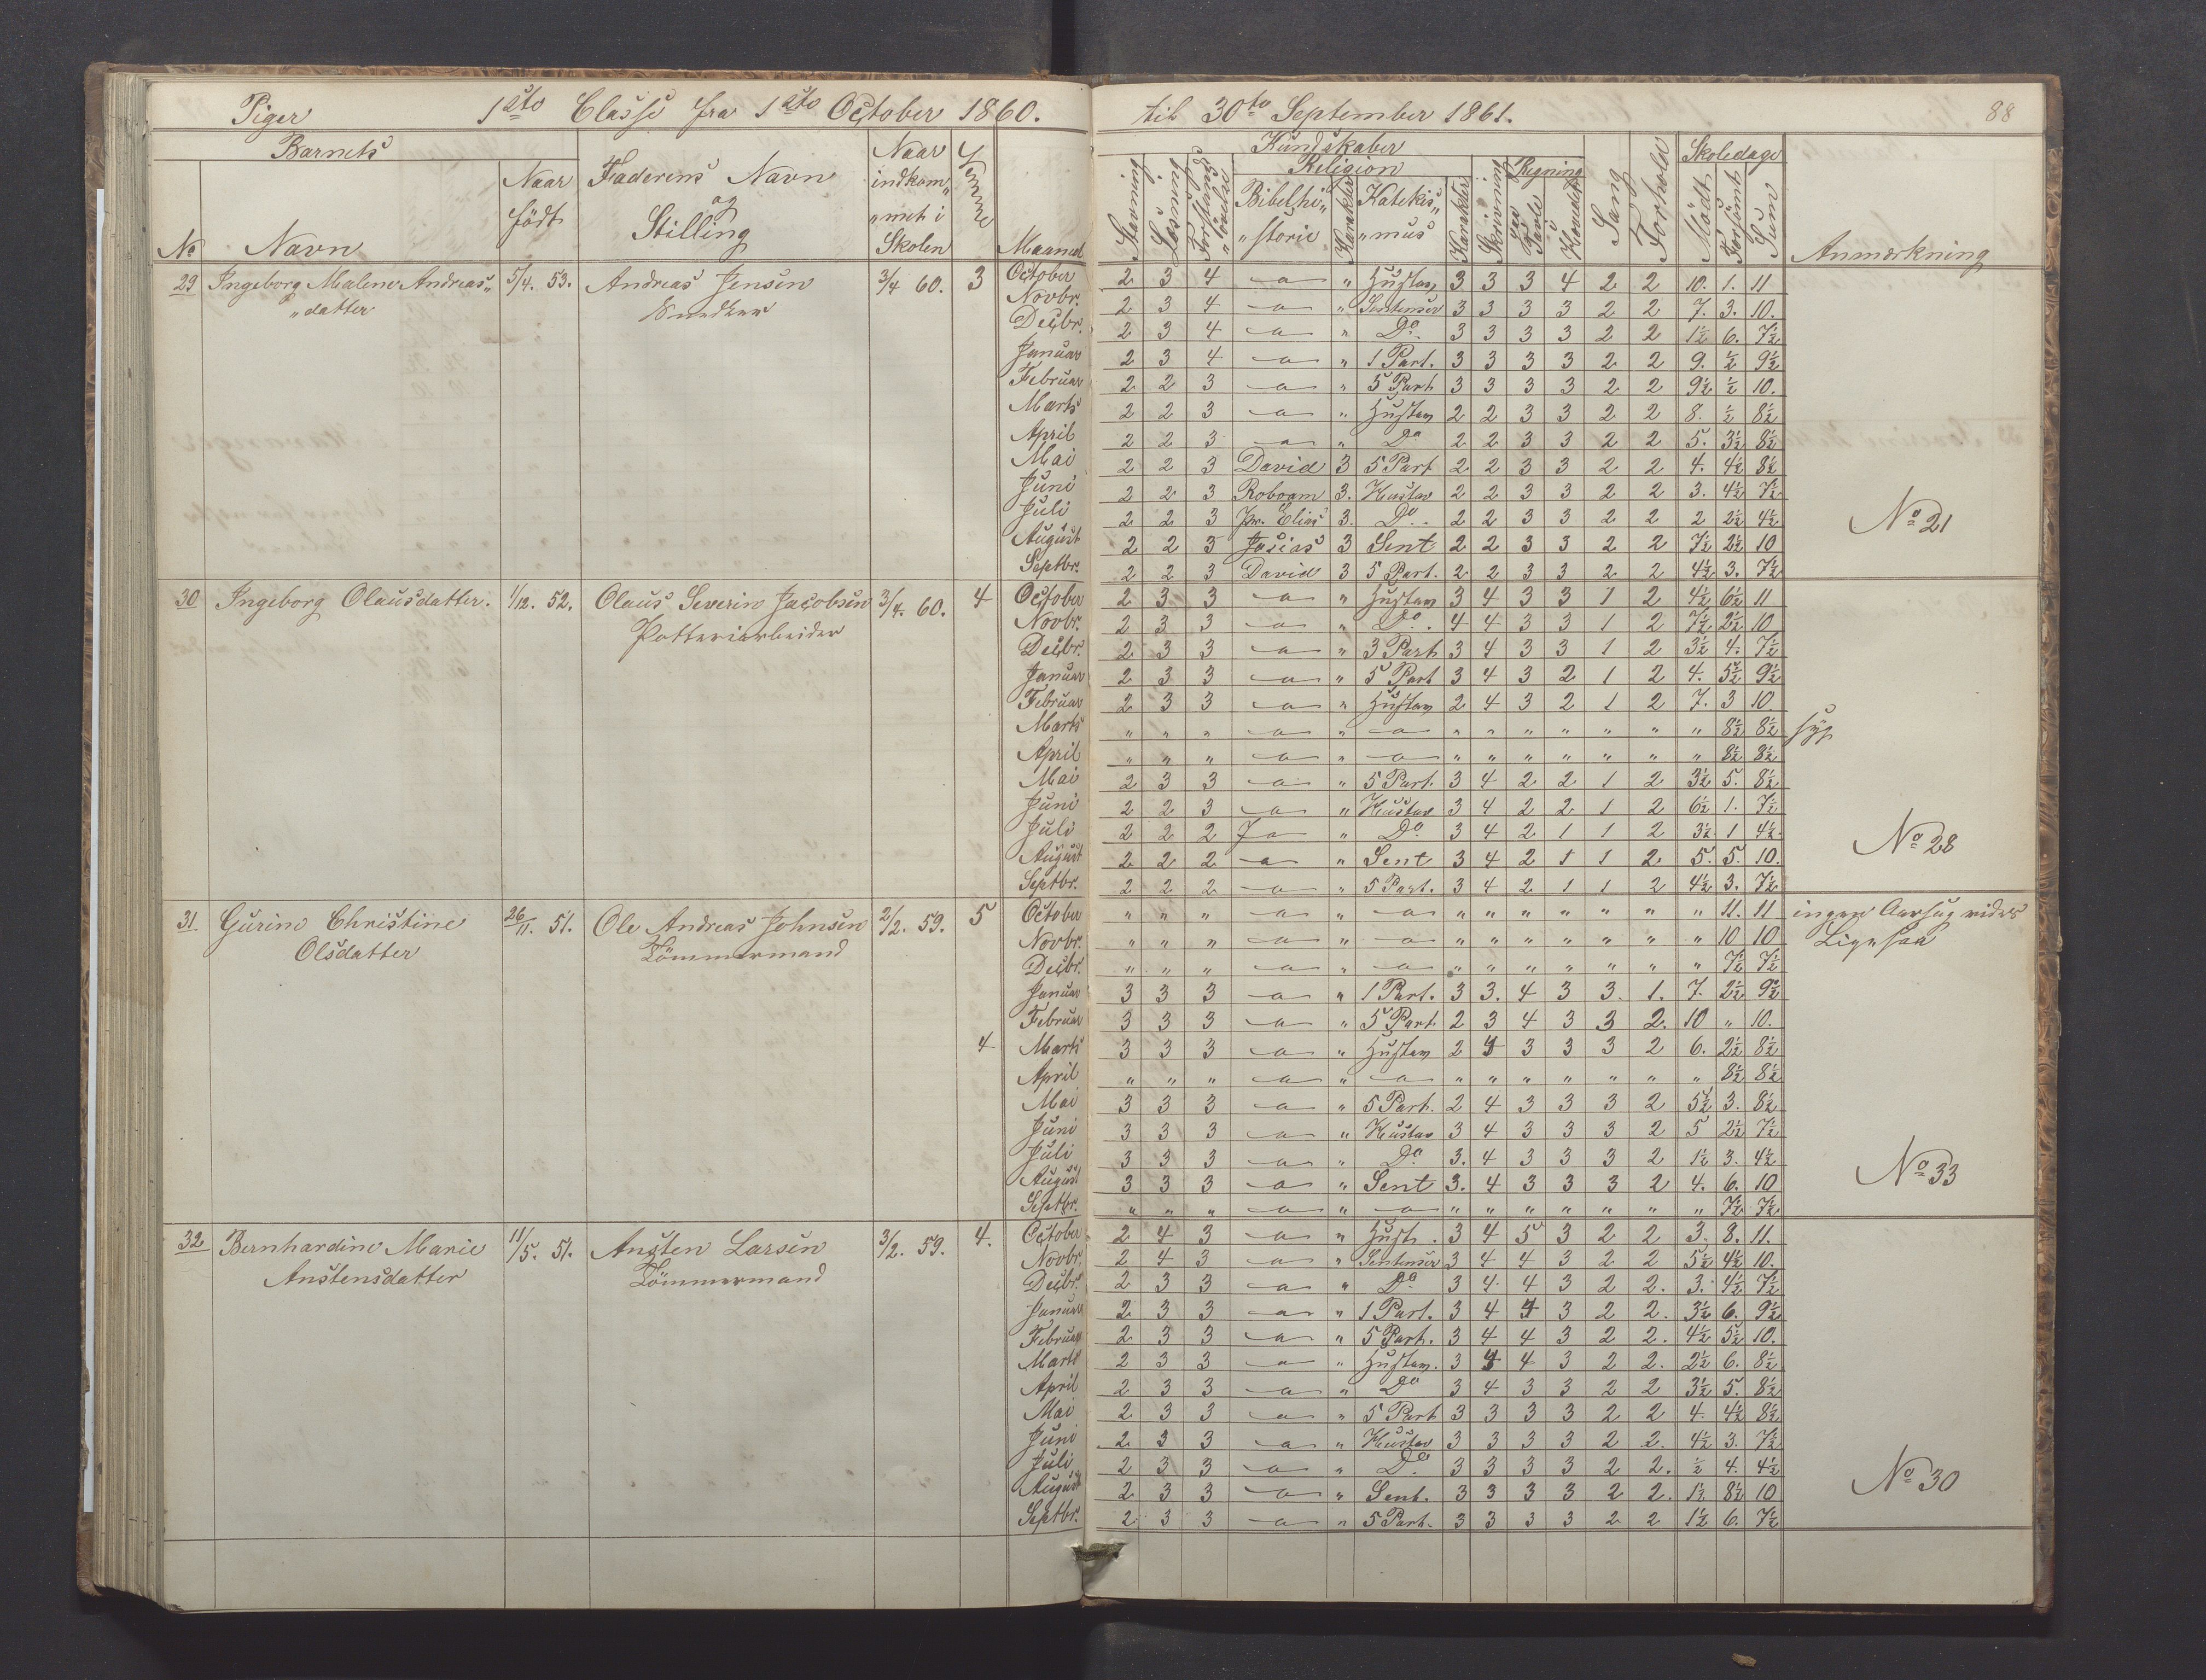 Piger 1ste Classe fra 1ste October 1860. til 30te September 1861. 88
Barnets Faderens Navn og Stilling Naar indkom„ „met i Skolen Maaned
No Navn Naar födt
Kundskaber Skoledage Anmærkning
Stavning Læsning Religion Bibelhi„ „storie Karakter Katekis„ „mus Karakter Skrivning Regning paa Tavle i Hovedet Sang Forhold Mödt Forsömt Sum
29 Ingeborg Malene Andreas„ 5/4. 53. Andreas Jensen 3/4 60. 3
„datter
October 2 3 4 — " Hustav 3 3 3 4 2 2 10. 1. 11
Novbr. 2 3 4 — " Sentenser 3 3 3 3 2 2 7. 3. 10.
Decbr. 2 3 4 — " Do 3 3 3 3 2 2 1½ 6. 7½
Januar 2 3 4 — " 1 Part. 3 3 3 3 2 2 9. ½ 9½
Februar 2 2 3 — " 5 Part 3 3 3 3 2 2 9½ ½ 10.
Marts 2 2 3 — " Hustav 2 2 3 3 2 2 8. ½ 8½
April 2 2 3 — " Do 2 2 3 3 2 2 5. 3½ 8½
Mai 2 2 3 David 3 5 Part 2 2 3 3 2 2 4. 4½ 8½
Juni 2 2 3 Roboam 3. Hustav 2 2 3 3 2 2 3. 4½ 7½
Juli 2 2 3 Elias 3. Do 2 2 3 3 2 2 2 2½ 4½ No 21
August 2 2 3 Josias 3 Sent 2 2 3 3 2 2 7½ 2½ 10
Septbr. 2 2 3 David 3 5 Part. 2 2 3 3 2 2 4½ 3. 7½
30 Ingeborg Olausdatter. 1/12. 52. Olaus Severin Jacobsen 3/4. 60. 4
Potteriarbeider
October 2 3 3 — " Hustav 3 4 3 3 1 2 4½ 6½ 11
Novbr. 2 3 3 — " Do. 4 4 3 3 1 2 7½ 2½ 10
Decbr. 2 3 3 — " 3 Part 3 4 3 3 1 2 3½ 4. 7½
Januar 2 3 3 — " 5 Part 3 4 3 2 1 2 4. 5½ 9½
Februar 2 3 3 — " Hustav 2 4 3 2 1 2 7. 3 10.
Marts " " " — " — " " " " " " " 8½ 8½ syg
April " " " — " — " " " " " " " 8½ 8½
Mai 2 3 3 — " 5 Part. 3 4 2 2 1 2 3½ 5. 8½
Juni 2 2 3 — " Hustav 3 4 2 2 1 2 6½ 1. 7½
Juli 2 2 2 — " Do 3 4 2 1 1 2 3½ 1 4½ No 28
August 2 2 2 — " Sent 3 4 2 1 1 2 5. 5. 10.
Septbr. 2 2 2 — " 5 Part. 3 4 2 1 1 2 4½ 3. 7½
31 Gurine Christine 26/11. 51. Ole Andreas Johnsen 2/2. 59. 5
Olsdatter Tömmermand
October " " " — " — " " " " " " " 11. 11 ingen Aarsag vides
Novbr. " " " — " — " " " " " " " 10 10 Ligesaa
Decbr. " " " — " — " " " " " " " 7½ 7½
Januar 3 3 3 — " 1 Part. 3 3. 4 3 3. 1. 7. 2½ 9½
Februar 3 3 3 — " 5 Part 2 3 4 3 3 2. 10 " 10.
4 Marts 3 3 3 — " Hustav 2 4 3 3 3 2 6. 2½ 8½
April " " " — " — " " " " " " " 8½ 8½
Mai 3 3 3 — " 5 Part. 2 4 3 3 3 2 5½ 3. 8½
Juni 3 3 3 — " Hustav 3 4 3 3 3 2 5 2½ 7½
Juli 3 3 3 — " Do 3. 4 3 3 3 2 1½ 3. 4½ No 33
August 3 3 3 — " Sent 3. 4 3 3 3 2 4. 6. 10
Septbr. " " " — " — " " " " " " " 7½ 7½
32 Bernhardine Marie 11/5. 51. Ansten Larsen 3/2. 59. 4.
Anstensdatter Tömmermand
October 2 4 3 — " Hust. 3 4 5 3 2 2 3. 8. 11.
Novbr. 2 4 3 — " Sentenser 3 4 4 3 2 2 5½ 4½ 10.
Decbr. 2 3 3 — " Do 3 4 4 3 2 2. 3. 4½ 7½
Januar 2 3 3 — " 1 Part. 3 4 4 3 2 2. 3½ 6. 9½
Februar 2 3 3 — " 5 Part. 3 4 4 3 2 2. 4½ 5½ 10.
Marts 2 3 3 — " Hustav. 3 4 4 3 2 2. 2½ 6. 8½
April 2 3 3 — " Do 3 4 3 3 2 2 3½ 5. 8½
Mai 2 3 3 — " 5 Part 3 3 3 3 2 2 4. 4½ 8½
Juni 2 3 3 — " Hustav 3 3 3 3 2 2. 4½ 3. 7½
Juli 2 3 3 — " Do. 3 3 3 3 2 2. ½ 4. 4½ No 30
August 2 3 3 — " Sent. 3 3 3 3 2 2. 1½ 8½ 10
Septbr. 2 3 3 — " 5 Part. 3 3 3 3 2 2 1½ 6. 7½